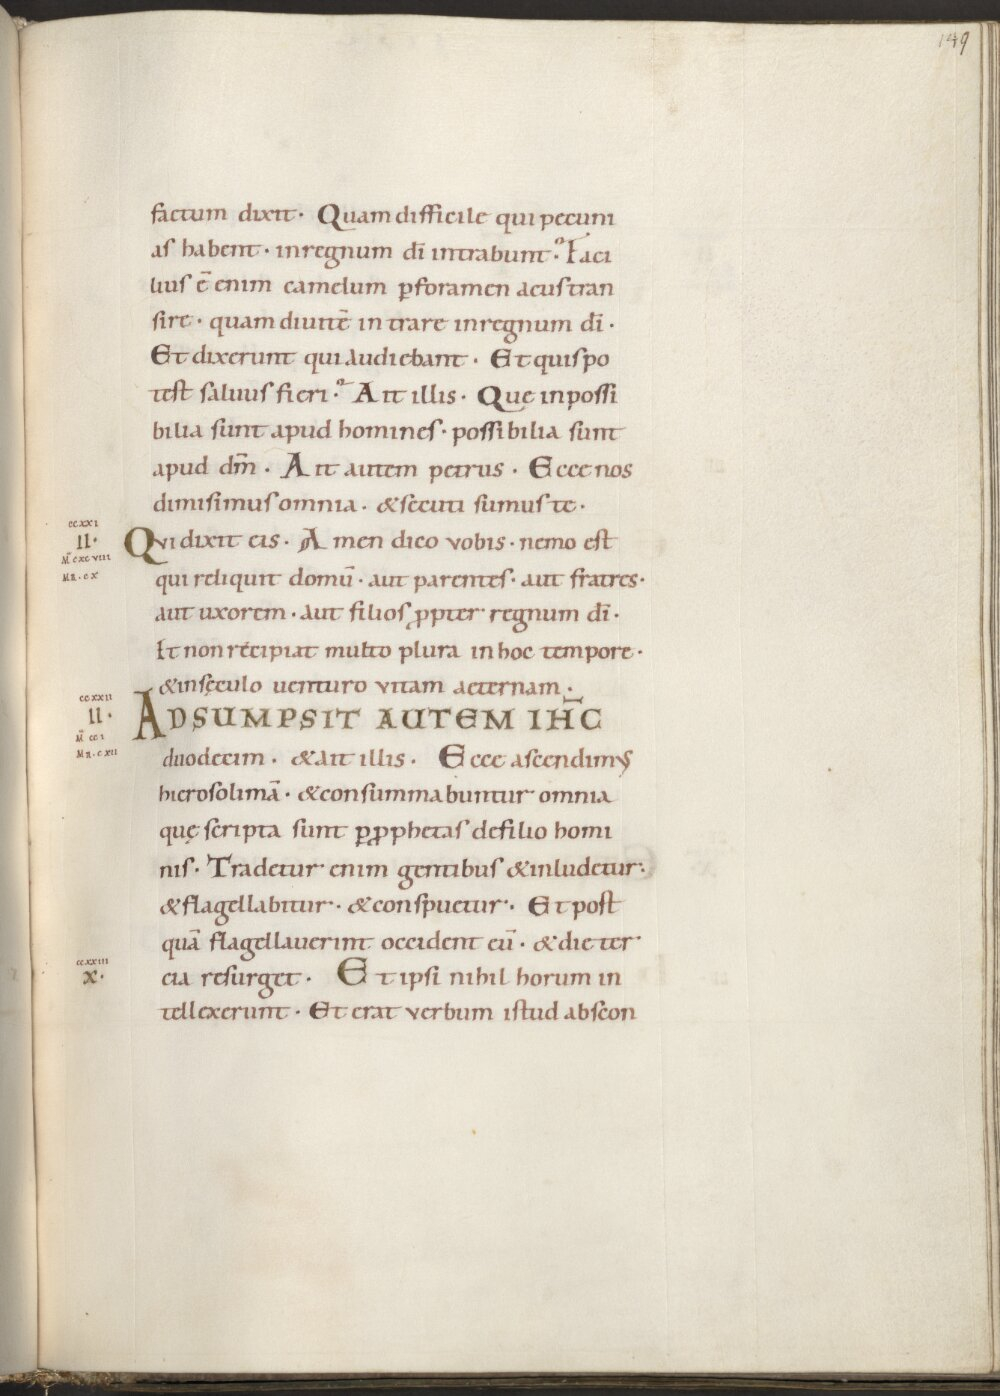 149
factum dixit· Quam difficile qui pecuni
as habent· in regnum dī intrabunt· Faci
lius ē enim camelum ꝑforamen acus tran
sire· quam diuitē intrare in regnum dī·
Et dixerunt qui audiebant· Et quis po
test saluus fieri· Ait illis· Que inpossi
bilia sunt apud homines· possibilia sunt
apud dm̄· Ait autem petrus· Ecce nos
dimisimus omnia· & secuti sumus te·
ccxxi
II·
M̄ cxcviii
MR·cx
Qui dixit eis· Amen dico vobis· nemo est
qui reliquit domū· aut parentes· aut fratres·
aut uxorem· aut filios ꝓpter regnum dī·
Et non recipiat multo plura in hoc tempore·
& in sęculo uenturo vitam aeternam·
ccxxii
II·
M̄ cci
MR·cxii
ADSUMPSIT AUTEM IHC̄
duodecim· & ait illis· Ecce ascendimus
hierosolimā· & consummabuntur omnia
quę scripta sunt ꝑ ꝓphetas de filio homi
nis· Tradetur enim gentibus & inludetur·
& flagellabitur· & conspuetur· Et post
quā flagellauerint occident eū· & die ter
ccxxiii
x·
cia resurget· Et ipsi nihil horum in
tellexerunt· Et erat verbum istud abscon